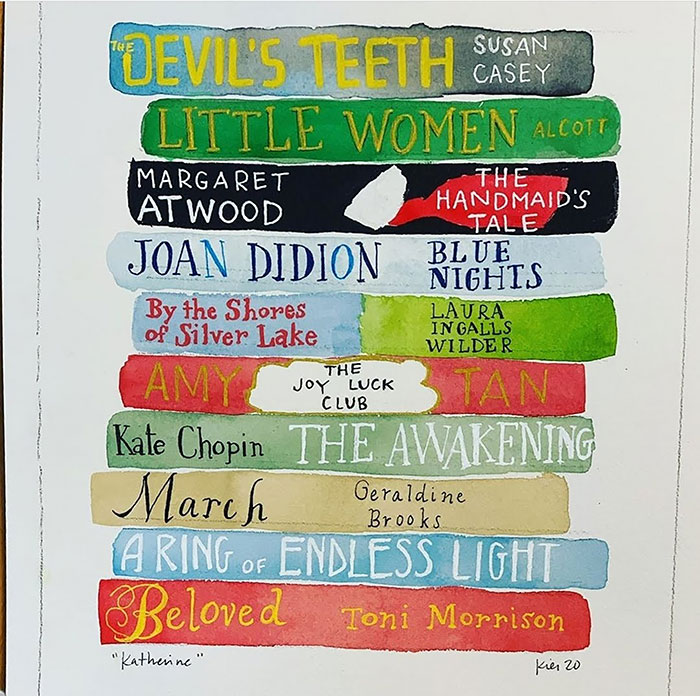 THE DEVIL'S TEETH
SUSAN
CASEY
LITTLE WOMEN ALCOTT
MARGARET
ATWOOD
THE
HANDMAID'S
TALE
JOAN DIDION
BLUE
NIGHTS
By the Shores
of Silver Lake
LAURA
INGALLS
WILDER
AMY
THE
JOY LUCK
CLUB
TAN
Kate Chopin THE AWAKENING
March
Geraldine
Brooks
A RING OF ENDLESS LIGHT
Beloved Toni Morrison
"Katherine"
20